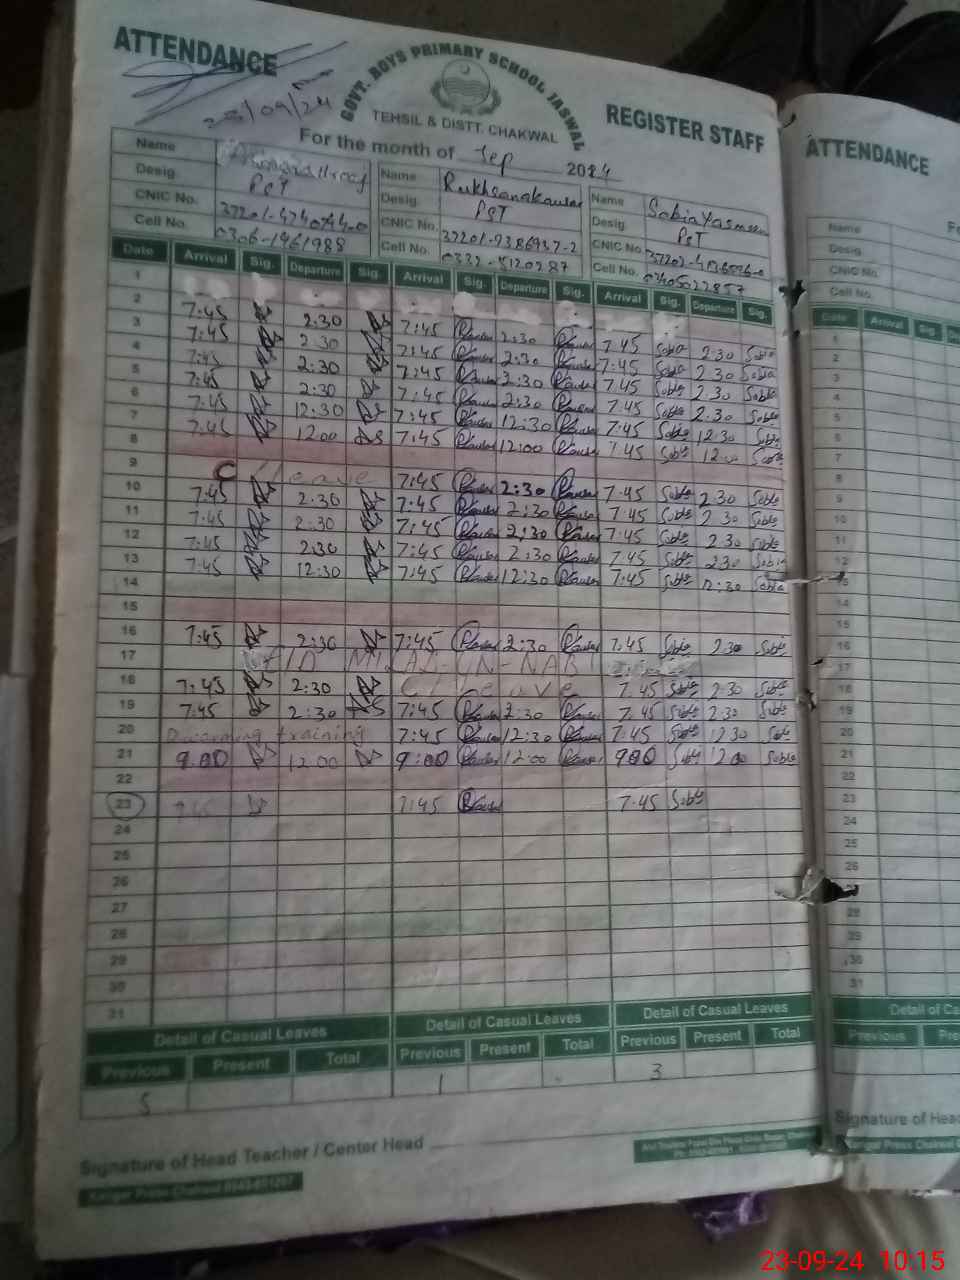 ATTENDANCE
GOVT. BOYS PRIMARY SCHOOL JASWAL
TEHSIL & DISTT. CHAKWAL
REGISTER STAFF
23/09/24
For the month of Sep 2024
Name Name Rukhsana Kausar Name Sobia Yasmeen
Desig. PST Desig. PST Desig. PST
CNIC No. CNIC No. 37201-9386937-2 CNIC No.
Cell No. 0306-1961988 Cell No. 0332-5120287 Cell No. 03405022857
Date Arrival Sig. Departure Sig. Arrival Sig. Departure Sig. Arrival Sig. Departure Sig.
1
2 7:45 2:30 7:45 Rkausar 2:30 Rkausar 7:45 Sobia 2:30 Sobia
3 7:45 2:30 7:45 Rkausar 2:30 Rkausar 7:45 Sobia 2:30 Sobia
4 7:45 2:30 7:45 Rkausar 2:30 Rkausar 7:45 Sobia 2:30 Sobia
5 7:45 2:30 7:45 Rkausar 2:30 Rkausar 7:45 Sobia 2:30 Sobia
6 7:45 12:30 7:45 Rkausar 12:30 Rkausar 7:45 Sobia 12:30 Sobia
7 7:45 12:00 7:45 Rkausar 12:00 Rkausar 7:45 Sobia 12:00 Sobia
8
9 C Leave 7:45 Rkausar 2:30 Rkausar 7:45 Sobia 2:30 Sobia
10 7:45 2:30 7:45 Rkausar 2:30 Rkausar 7:45 Sobia 2:30 Sobia
11 7:45 2:30 7:45 Rkausar 2:30 Rkausar 7:45 Sobia 2:30 Sobia
12 7:45 2:30 7:45 Rkausar 2:30 Rkausar 7:45 Sobia 2:30 Sobia
13 7:45 12:30 7:45 Rkausar 12:30 Rkausar 7:45 Sobia 12:30 Sobia
14
15
16 7:45 2:30 7:45 Rkausar 2:30 Rkausar 7:45 Sobia 2:30 Sobia
17 EID MILAD-UN-NABI
18 7:45 2:30 C Leave 7:45 Sobia 2:30 Sobia
19 7:45 2:30 7:45 Rkausar 2:30 Rkausar 7:45 Sobia 2:30 Sobia
20 training 7:45 Rkausar 12:30 Rkausar 7:45 Sobia 12:30 Sobia
21 9:00 12:00 9:00 Rkausar 12:00 Rkausar 9:00 Sobia 12:00 Sobia
22
23 7:45 7:45 Rkausar 7:45 Sobia
24
25
26
27
28
29
30
31
Detail of Casual Leaves Detail of Casual Leaves Detail of Casual Leaves
Previous Present Total Previous Present Total Previous Present Total
5 1 3
Signature of Head Teacher / Center Head
ATTENDANCE
Name
Desig.
CNIC No.
Cell No.
Date Arrival Sig
1
2
3
4
5
6
7
8
9
10
11
12
13
14
15
16
17
18
19
20
21
22
23
24
25
26
28
29
30
31
Detail of Ca
Previous Pre
Signature of Head
23-09-24 10:15